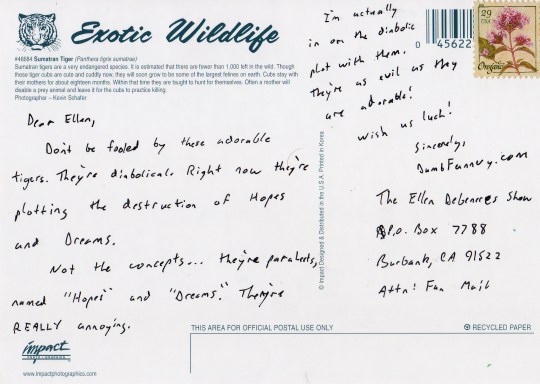 Exotic Wildlife
#46684 Sumatran Tiger (Panthera tigris sumatrae)
Sumatran tigers are a very endangered species. It is estimated that there are fewer than 1,000 left in the wild. Though
these tiger cubs are cute and cuddly now, they will soon grow to be some of the largest felines on earth. Cubs stay with
their mothers for about eighteen months. Within that time they are taught to hunt for themselves. Often a mother will
disable a prey animal and leave it for the cubs to practice killing.
Photographer – Kevin Schafer
Dear Ellen,
Don't be fooled by these adorable
tigers. They're diabolical. Right now they're
plotting the destruction of Hopes
and Dreams.
Not the concepts... they're parakeets,
named "Hopes" and "Dreams". They're
REALLY annoying.
I'm actually
in on the diabolic
plot with them.
They're as evil as they
are adorable!
Wish us luck!
Sincerely,
DumbFunnery.com
0 45622
29
USA
© Impact Designed & Distributed in the U.S.A. Printed in Korea
The Ellen Degeneres Show
P.O. Box 7788
Burbank, CA 91522
Attn: Fan Mail
THIS AREA FOR OFFICIAL POSTAL USE ONLY
RECYCLED PAPER
impact
www.impactphotographics.com